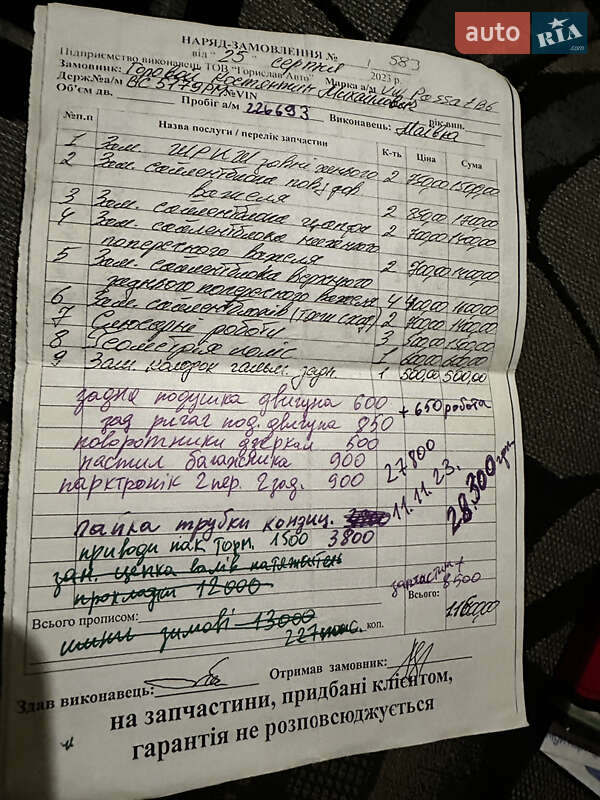 auto RIA .com
НАРЯД-ЗАМОВЛЕННЯ № 583
від " 25 " серпня 2023 р.
Підприємство виконавець ТОВ "Горислав Авто"
Замовник: Головай Михайлович Марка а/м VW Passat B6
Держ.№а/м BC5179PM №VIN рік.вип.
Об'єм дв. Пробіг а/м 226693 Виконавець:
№п.п Назва послуги / перелік запчастин К-ть Ціна Сума
1 Зам. ШРКШ зовнішнього 2 750,00 1500,00
2 Зам. саллентблока під дов. важеля 2 850,00 1700,00
3 Зам. саллентблока цапфи 2 700,00 1400,00
4 Зам. саллентблока нижнього
поперечного важеля 2 700,00 1400,00
5 Зам. саллентблока верхнього
заднього поперечного важеля 4 400,00 1600,00
6 Зам. 2 700,00 1400,00
7 Слюсарні роботи 3 500,00 1500,00
8 Геометрія коліс 1 600,00 600,00
9 Зам. колодок гальм. задн. 1 500,00 500,00
задня подушка двигуна 600
зад ричаг под. двигуна 850 + 650 робота
поворотники дзеркал 500
пастил багажника 900 27800
парктронік 2 пер. 2 зад. 900 11.11.23.
28.300 грн
пайка трубки кондиц.
приводи пак торм. 1500 3800
зам. цепка валів натяжитель
прокладки 12000
запчастин +
8500
Всього: 11600,00
Всього прописом:
шини зимові 13000 коп.
227тис.
Здав виконавець: Отримав замовник:
на запчастини, придбані клієнтом,
гарантія не розповсюджується